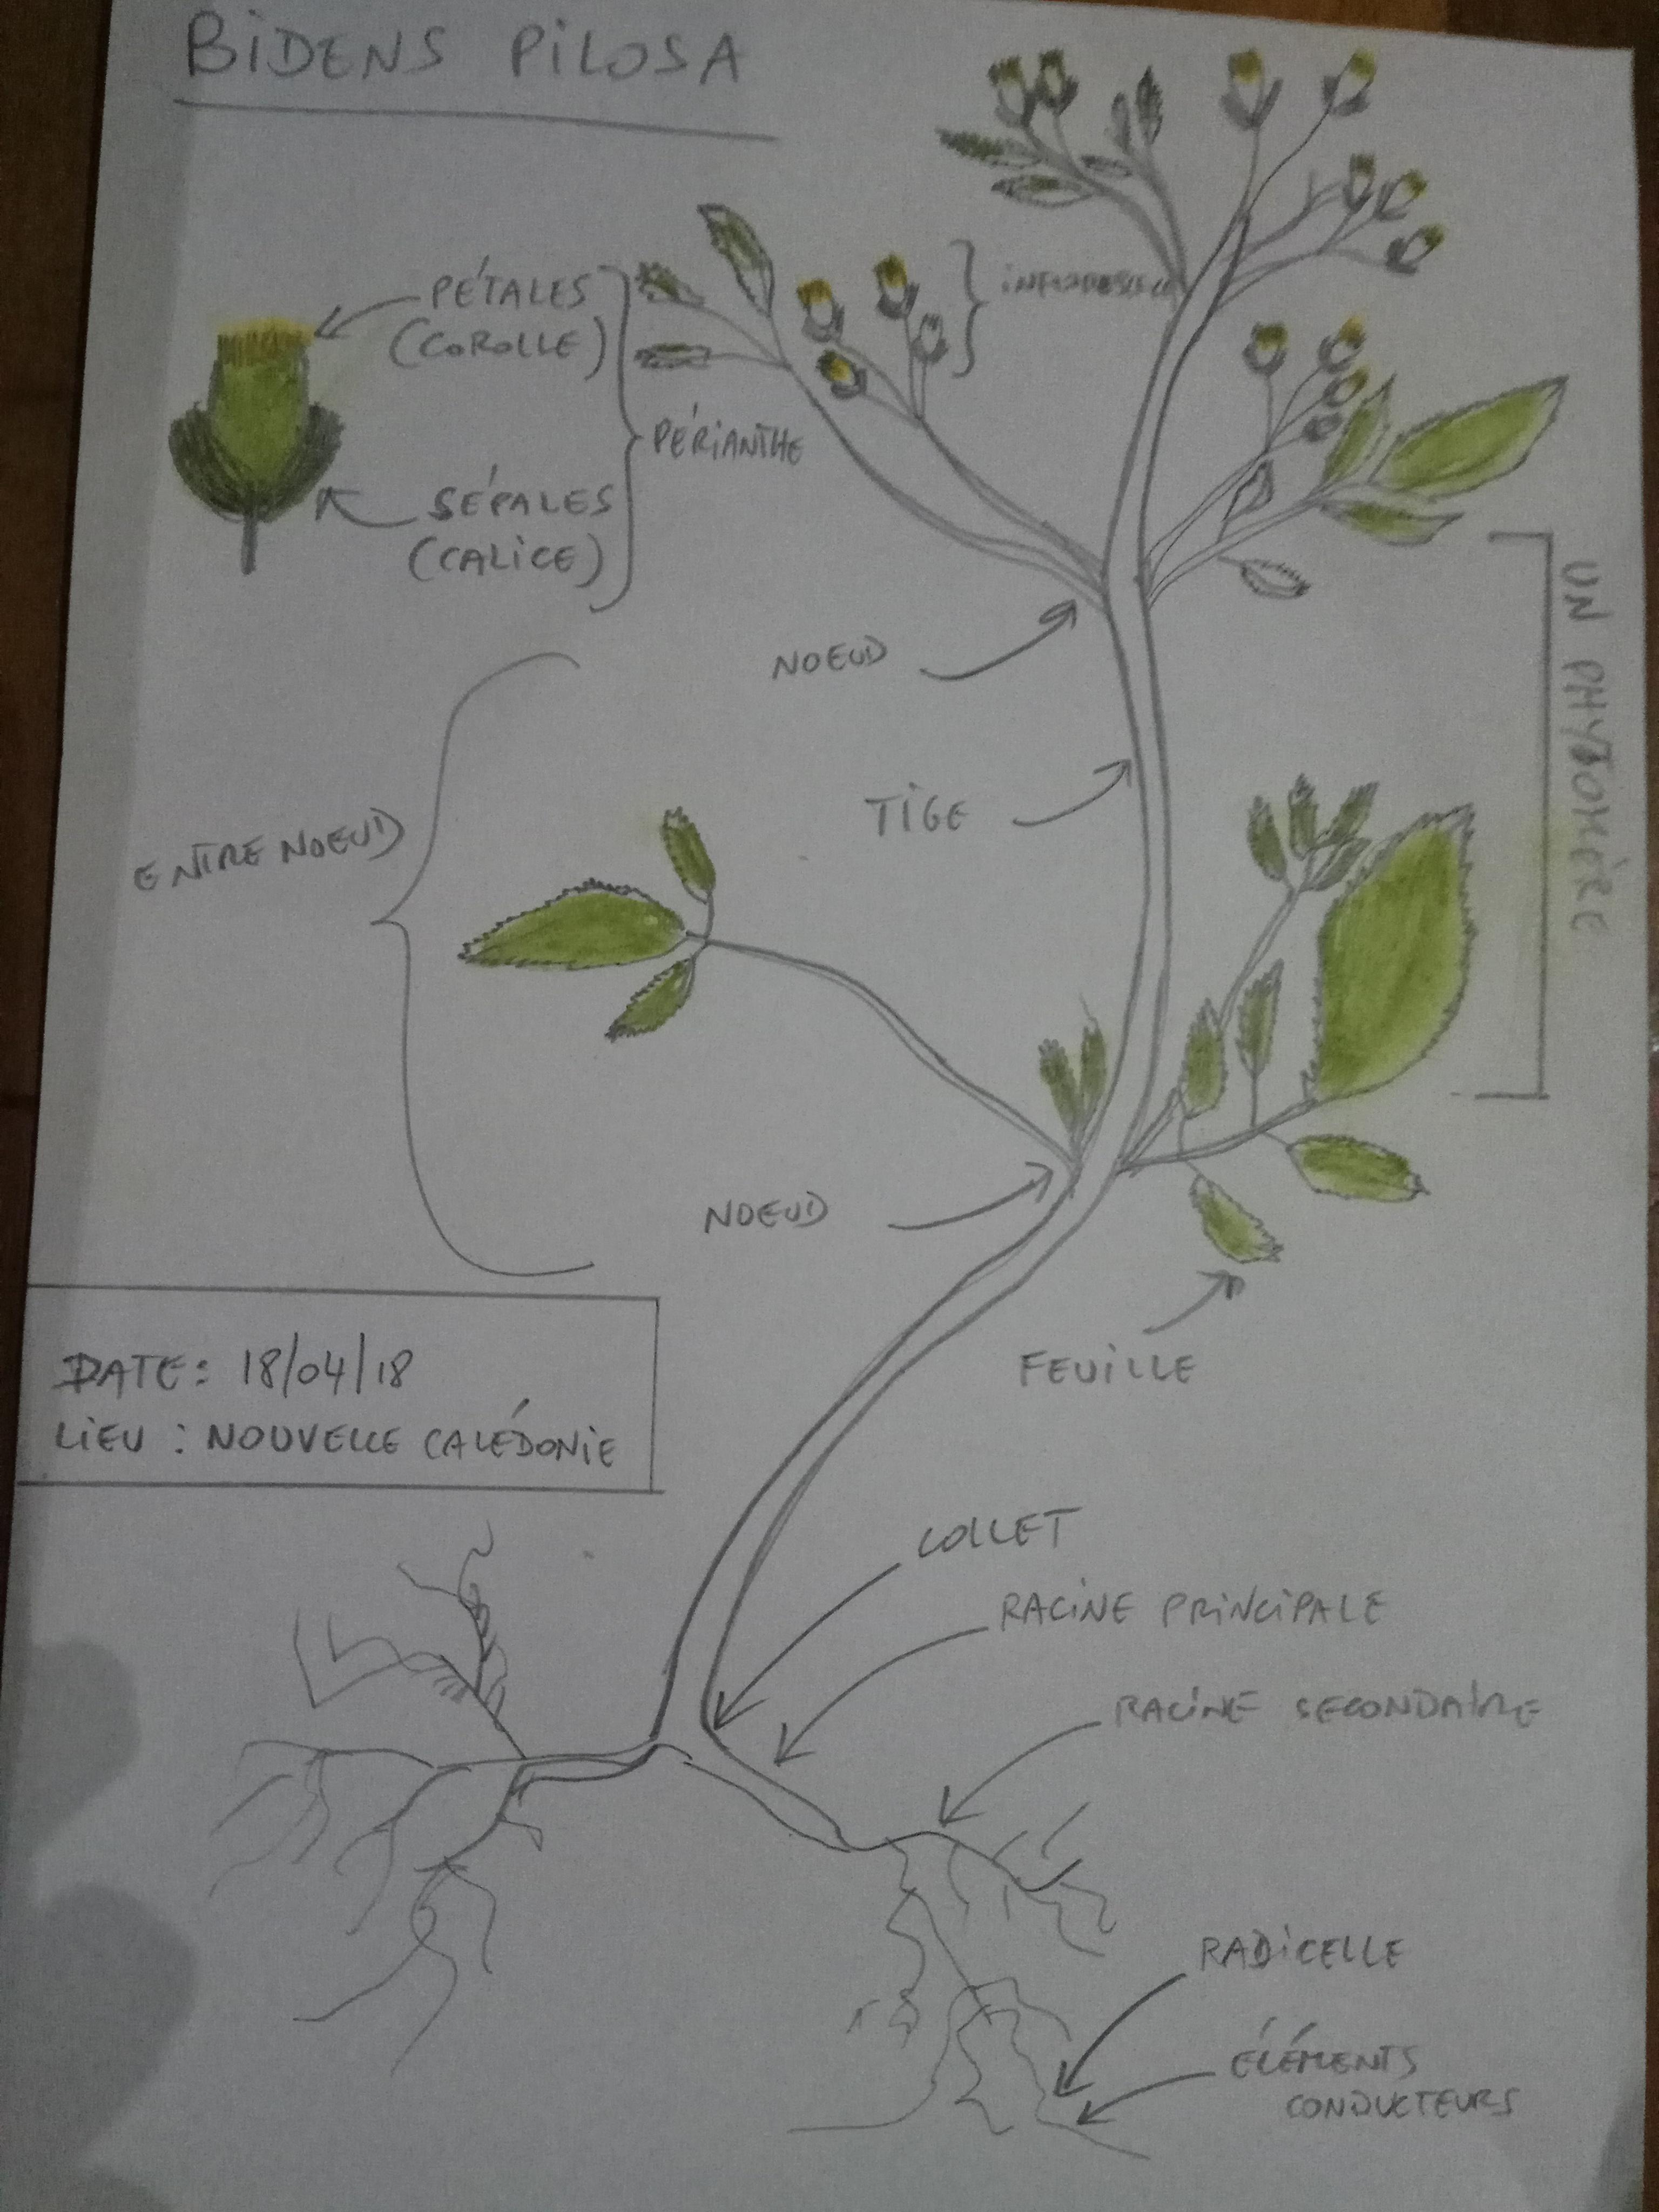 BIDENS PILOSA
PÉTALES
(COROLLE)
INFLORESCENCE
PÉRIANTHE
SÉPALES
(CALICE)
UN PHYTOMÈRE
NOEUD
TIGE
ENTRE NOEUD
NOEUD
FEUILLE
DATE : 18/04/18
LIEU : NOUVELLE CALÉDONIE
COLLET
RACINE PRINCIPALE
RACINE SECONDAIRE
RADICELLE
ÉLÉMENTS
CONDUCTEURS